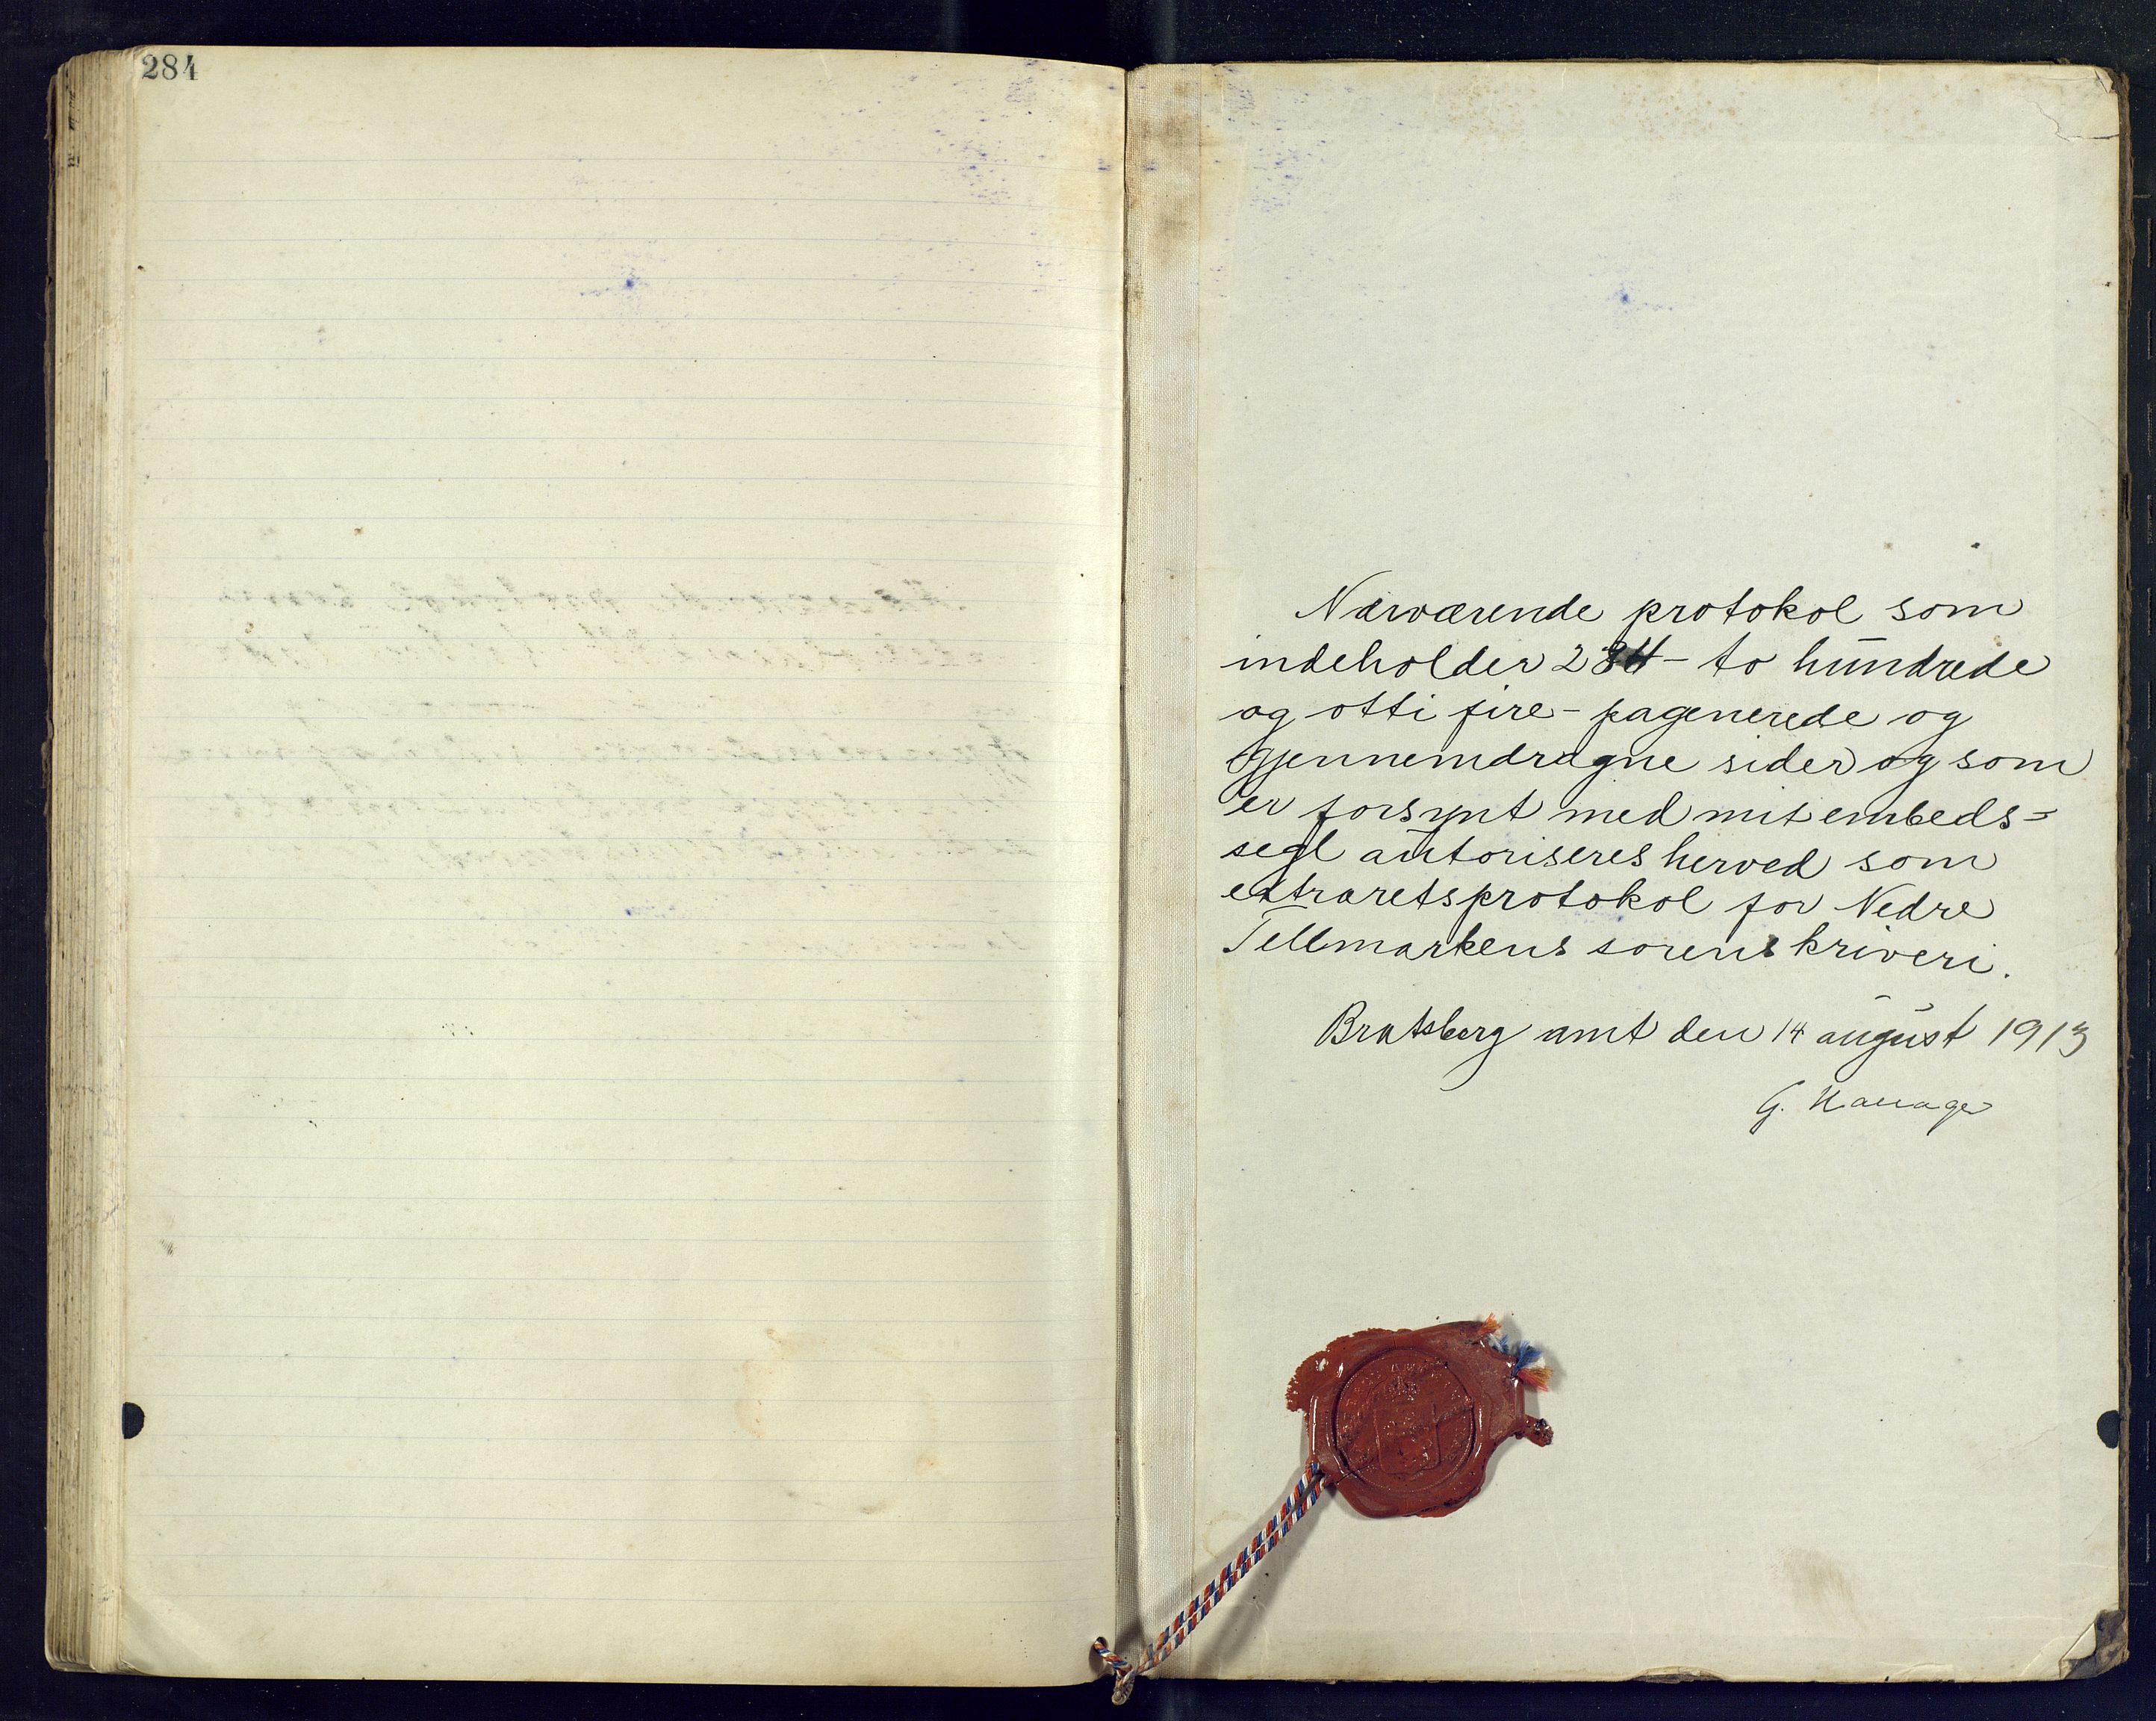 284
Nærværende protokol som
indeholder 284 - to hundrede
og otti fire - pagenerede og
gjennemdragne sider og som
er forsynt med mit embeds=
segl autoriseres herved som
extraretsprotokol for Nedre
Tellmarkens sorenskriveri.
Bratsberg amt den 14 august 1913
G.